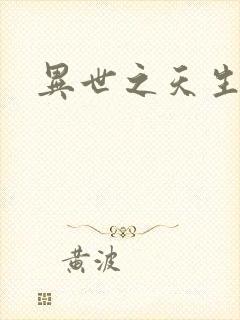 異世之天生
黃波